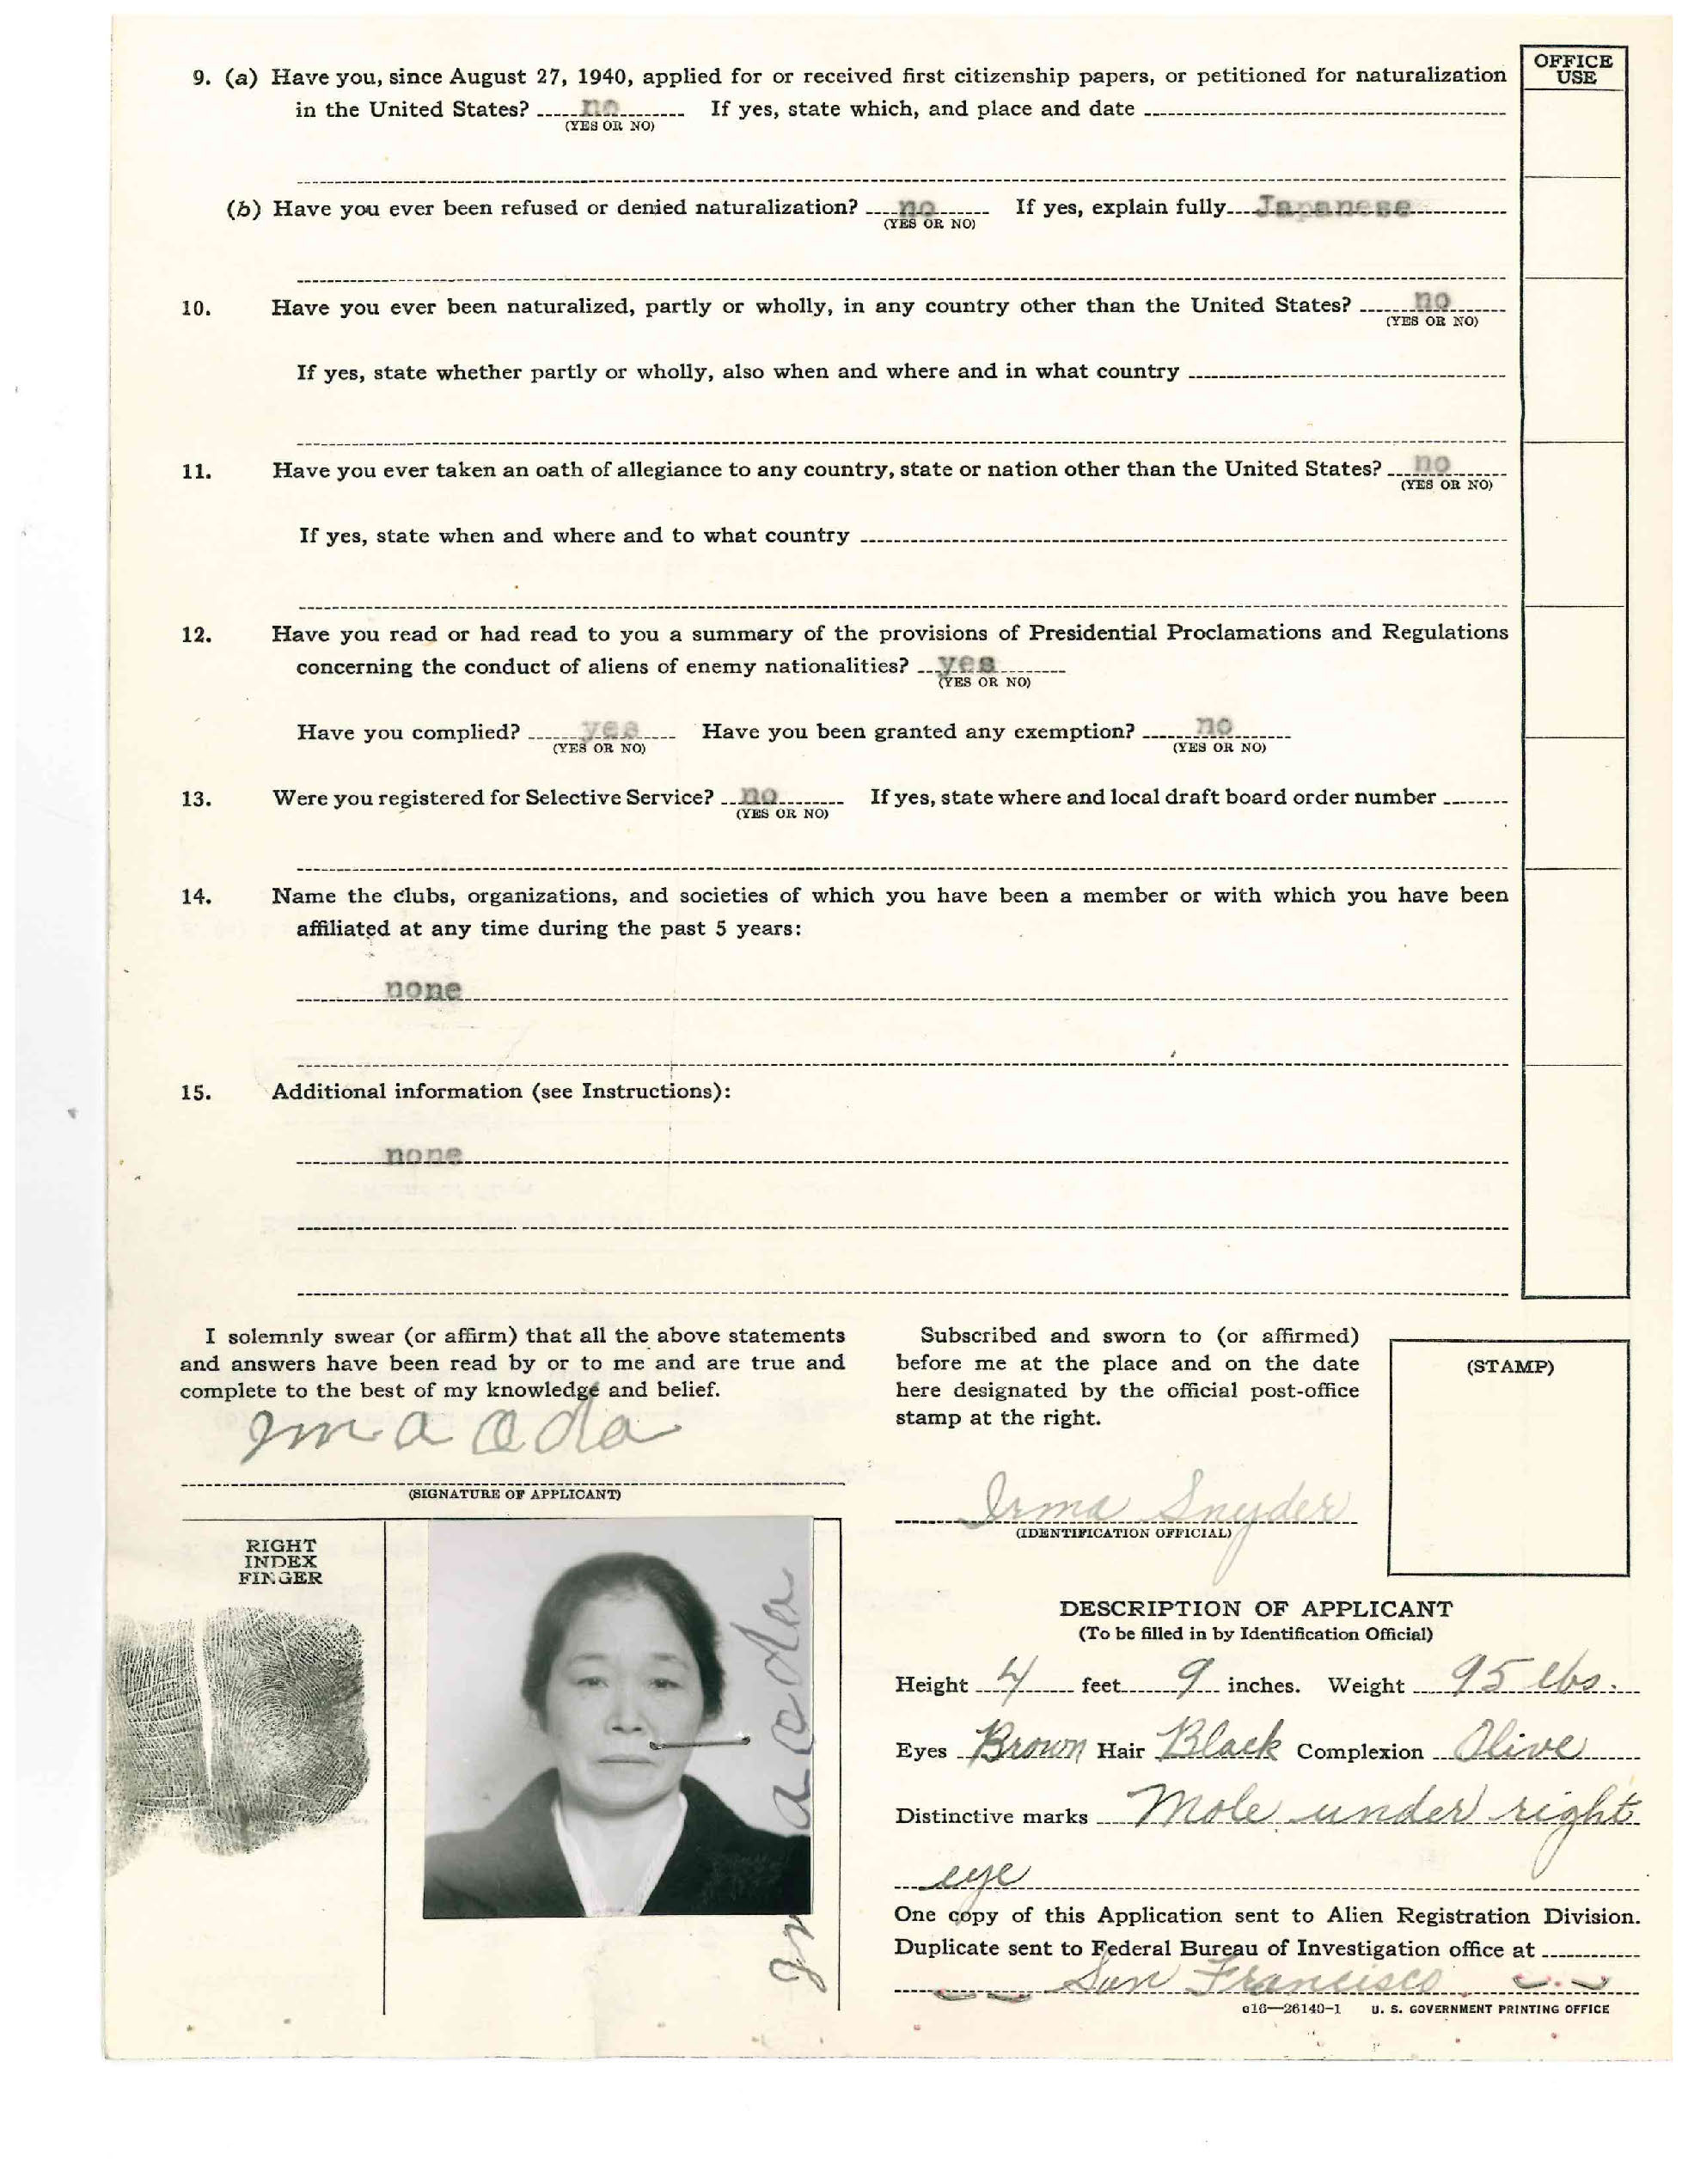 OFFICE
USE
9. (a) Have you, since August 27, 1940, applied for or received first citizenship papers, or petitioned for naturalization
in the United States? no If yes, state which, and place and date
(YES OR NO)
(b) Have you ever been refused or denied naturalization? no If yes, explain fully Japanese
(YES OR NO)
10. Have you ever been naturalized, partly or wholly, in any country other than the United States? no
(YES OR NO)
If yes, state whether partly or wholly, also when and where and in what country
11. Have you ever taken an oath of allegiance to any country, state or nation other than the United States? no
(YES OR NO)
If yes, state when and where and to what country
12. Have you read or had read to you a summary of the provisions of Presidential Proclamations and Regulations
concerning the conduct of aliens of enemy nationalities? yes
(YES OR NO)
Have you complied? yes Have you been granted any exemption? no
(YES OR NO) (YES OR NO)
13. Were you registered for Selective Service? no If yes, state where and local draft board order number
(YES OR NO)
14. Name the clubs, organizations, and societies of which you have been a member or with which you have been
affiliated at any time during the past 5 years:
none
15. Additional information (see Instructions):
none
I solemnly swear (or affirm) that all the above statements
and answers have been read by or to me and are true and
complete to the best of my knowledge and belief.
Ima Oda
(SIGNATURE OF APPLICANT)
Subscribed and sworn to (or affirmed)
before me at the place and on the date
here designated by the official post-office
stamp at the right.
(STAMP)
Irma Snyder
(IDENTIFICATION OFFICIAL)
RIGHT
INDEX
FINGER
Ima Oda
DESCRIPTION OF APPLICANT
(To be filled in by Identification Official)
Height 4 feet 9 inches. Weight 95 lbs.
Eyes Brown Hair Black Complexion Olive
Distinctive marks Mole under right
eye
One copy of this Application sent to Alien Registration Division.
Duplicate sent to Federal Bureau of Investigation office at
San Francisco
c16—26140-1 U. S. GOVERNMENT PRINTING OFFICE